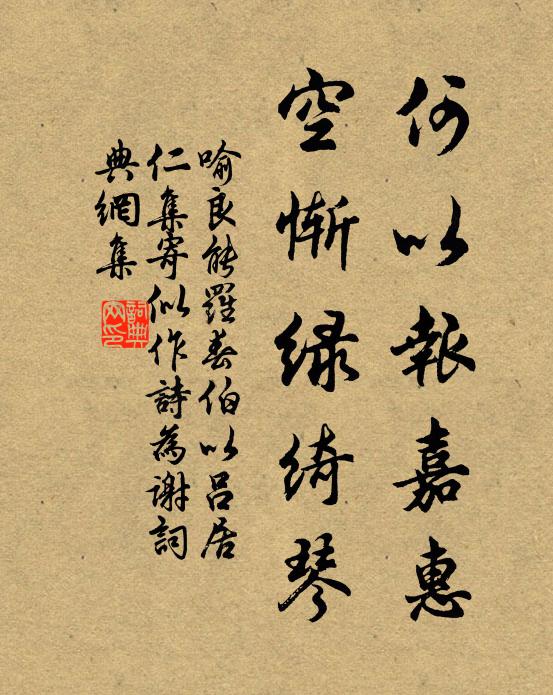 何以報嘉惠
空慚綠綺琴
喻良能羅春伯以呂居
仁集寄似作詩為謝詞
典網集
詞典
网印